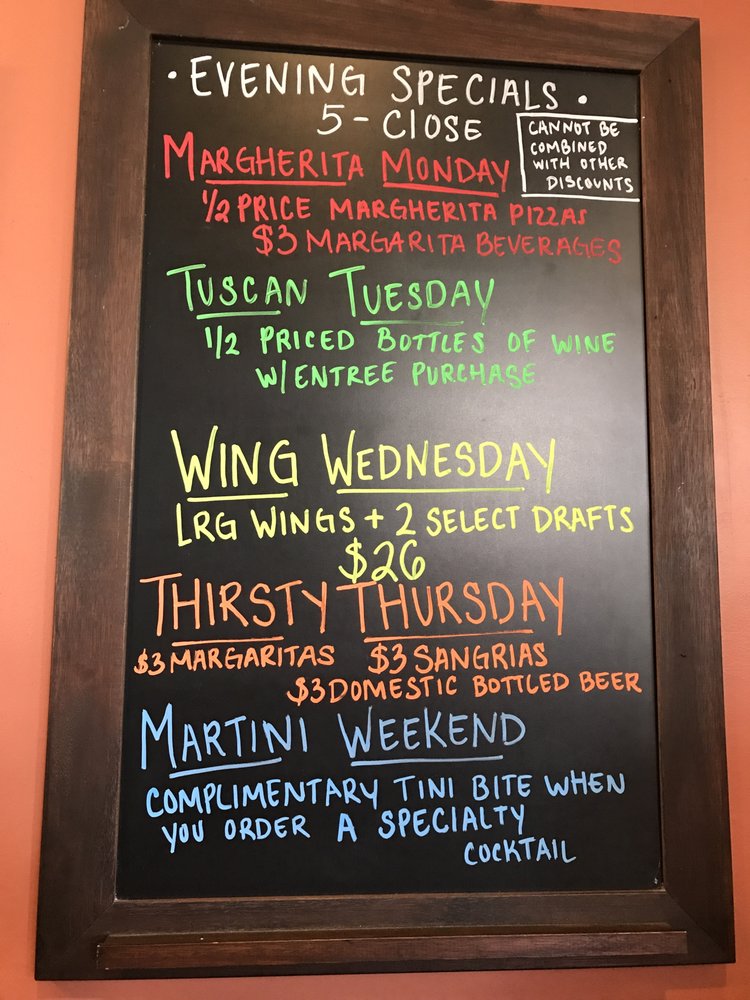 • EVENING SPECIALS •
5 - CLOSE
CANNOT BE
COMBINED
WITH OTHER
DISCOUNTS
MARGHERITA MONDAY
1/2 PRICE MARGHERITA PIZZAS
$3 MARGARITA BEVERAGES
TUSCAN TUESDAY
1/2 PRICED BOTTLES OF WINE
W/ ENTREE PURCHASE
WING WEDNESDAY
LRG WINGS + 2 SELECT DRAFTS
$26
THIRSTY THURSDAY
$3 MARGARITAS $3 SANGRIAS
$3 DOMESTIC BOTTLED BEER
MARTINI WEEKEND
COMPLIMENTARY TINI BITE WHEN
YOU ORDER A SPECIALTY
COCKTAIL